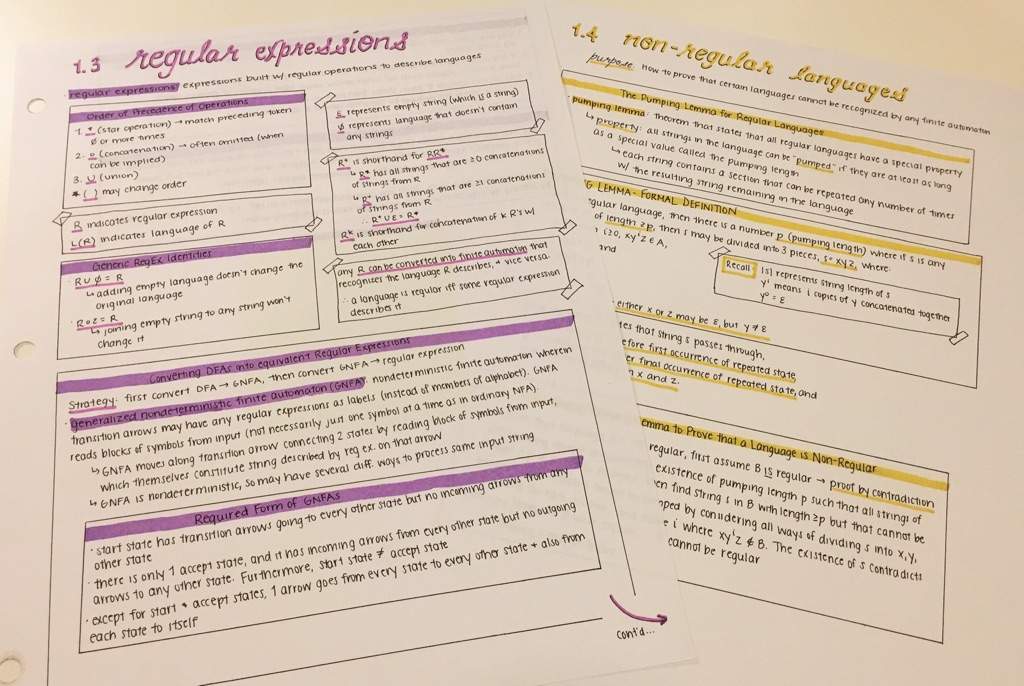 1.3 regular expressions
regular expressions/ expressions built w/ regular operations to describe languages
Order of Precedence of Operations
1. * (star operation) → match preceding token
0 or more times
2. o (concatenation) → often omitted (when
can be implied)
3. ∪ (union)
* ( ) may change order
R indicates regular expression
L(R) indicates language of R
Generic RegEx Identities
· R ∪ ∅ = R
↳ adding empty language doesn't change the
original language
· R o ε = R
↳ joining empty string to any string won't
change it
ε represents empty string (which is a string)
∅ represents language that doesn't contain
any strings
R⁺ is shorthand for RR*
↳ R* has all strings that are ≥0 concatenations
of strings from R
↳ R⁺ has all strings that are ≥1 concatenations
of strings from R
∴ R⁺ ∪ ε = R*
Rᵏ is shorthand for concatenation of k R's w/
each other
any R can be converted into finite automaton that
recognises the language R describes, + vice versa.
∴ a language is regular iff some regular expression
describes it
Converting DFAs into equivalent Regular Expressions
Strategy: first convert DFA → GNFA, then convert GNFA → regular expression
· generalized nondeterministic finite automaton (GNFA): nondeterministic finite automaton wherein
transition arrows may have any regular expressions as labels (instead of members of alphabet). GNFA
reads blocks of symbols from input (not necessarily just one symbol at a time as in ordinary NFA)
↳ GNFA moves along transition arrow connecting 2 states by reading block of symbols from input,
which themselves constitute string described by reg ex. on that arrow
↳ GNFA is nondeterministic, so may have several diff. ways to process same input string
Required Form of GNFAs
· start state has transition arrows going to every other state but no incoming arrows from any
other state
· there is only 1 accept state, and it has incoming arrows from every other state but no outgoing
arrows to any other state. Furthermore, start state ≠ accept state
· except for start + accept states, 1 arrow goes from every state to every other state + also from
each state to itself
cont'd...
1.4 non-regular languages
purpose: How to prove that certain languages cannot be recognized by any finite automaton
The Pumping Lemma for Regular Languages
pumping lemma: theorem that states that all regular languages have a special property
↳ property: all strings in the language can be "pumped" if they are at least as long
as a special value called the pumping length
↳ each string contains a section that can be repeated any number of times
w/ the resulting string remaining in the language
G LEMMA - FORMAL DEFINITION
gular language, then there is a number p (pumping length) where if s is any
of length ≥p, then s may be divided into 3 pieces, s = xyz, where:
i ≥0, xyⁱz ∈ A,
and
Recall
|s| represents string length of s
yⁱ means i copies of y concatenated together
y⁰ = ε
either x or z may be ε, but y ≠ ε
tes that string s passes through,
efore first occurrence of repeated state
er final occurrence of repeated state, and
n x and z.
emma to Prove that a Language is Non-Regular
regular, first assume B IS regular → proof by contradiction
existence of pumping length p such that all strings of
en find string s in B with length ≥p but that cannot be
mped by considering all ways of dividing s into x,y,
e i where xyⁱz ∉ B. The existence of s contradicts
cannot be regular